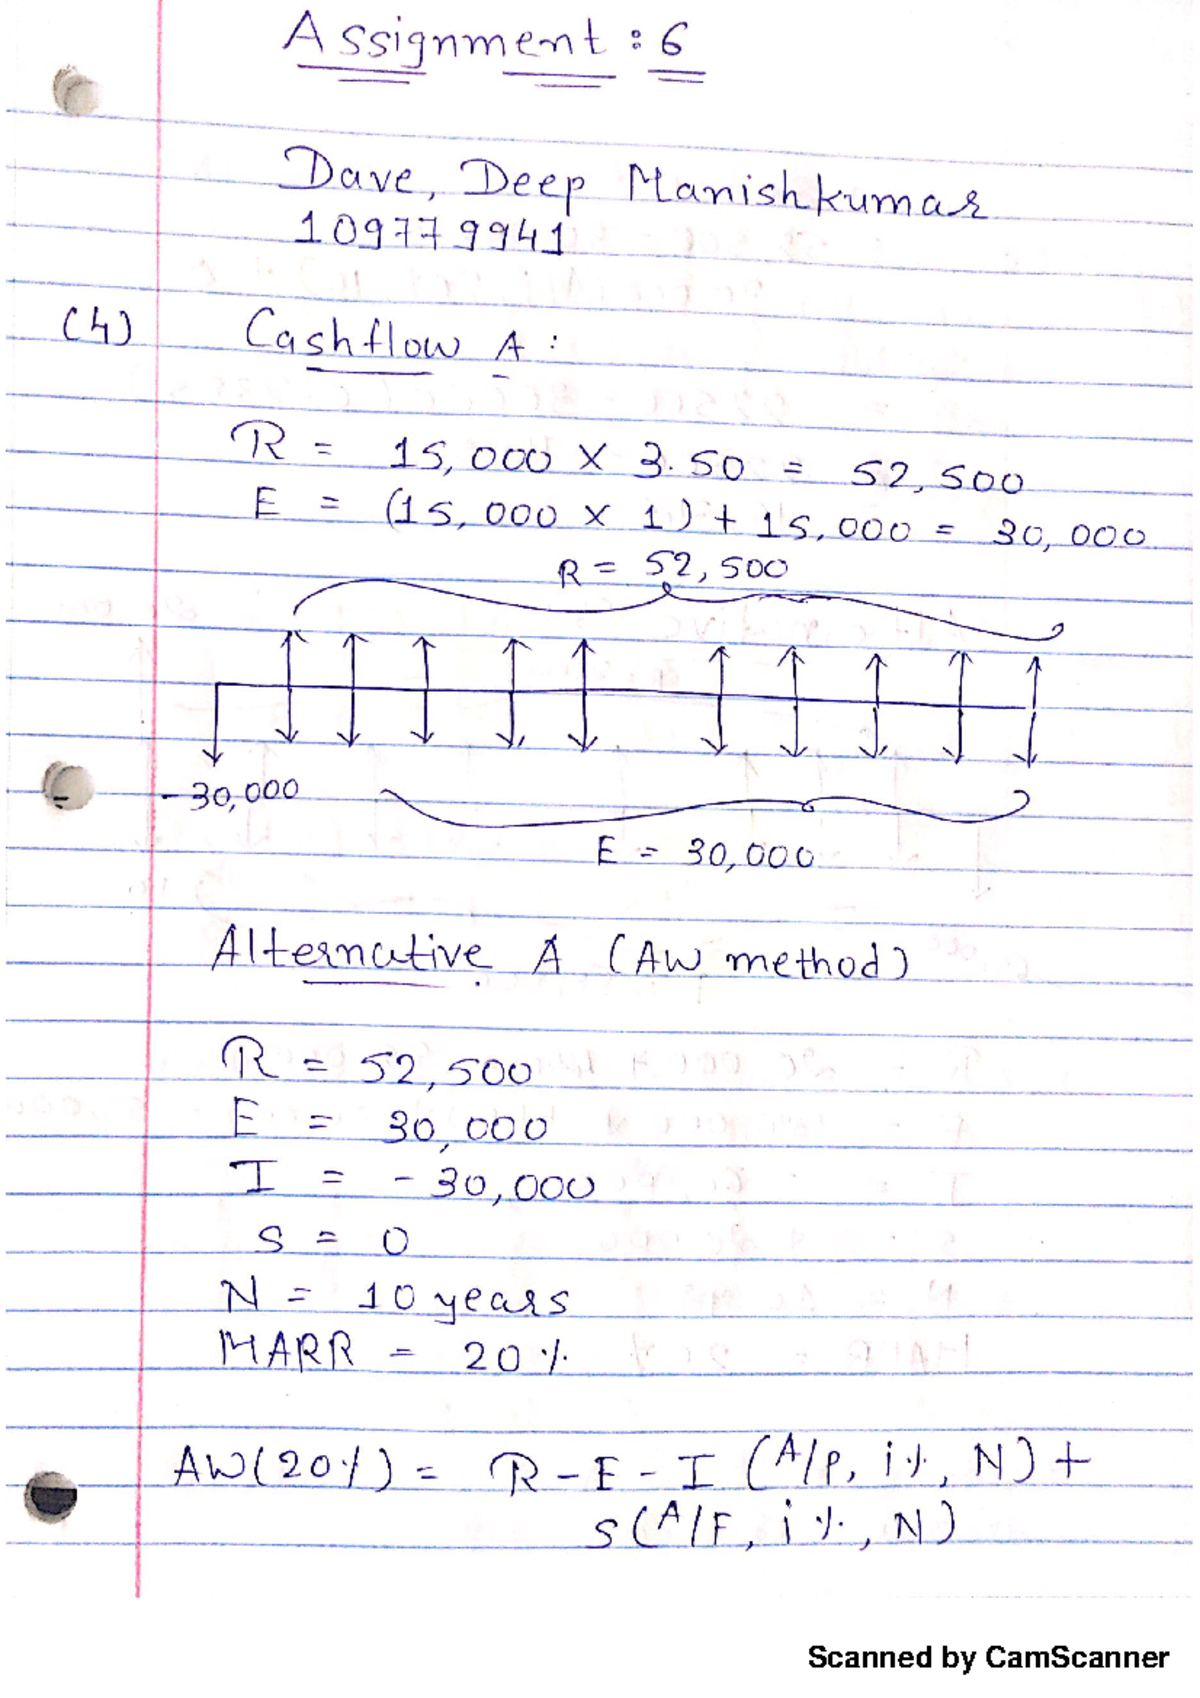 Assignment : 6
Dave, Deep Manishkumar
109779941
(4) Cashflow A :
R = 15,000 X 3.50 = 52,500
E = (15,000 x 1) + 15,000 = 30,000
R = 52,500
- 30,000
E = 30,000
Alternative A (AW method)
R = 52,500
E = 30,000
I = - 30,000
S = 0
N = 10 years
MARR = 20 %
AW(20%) = R - E - I (A/P, i%, N) +
S(A/F, i%, N)
Scanned by CamScanner